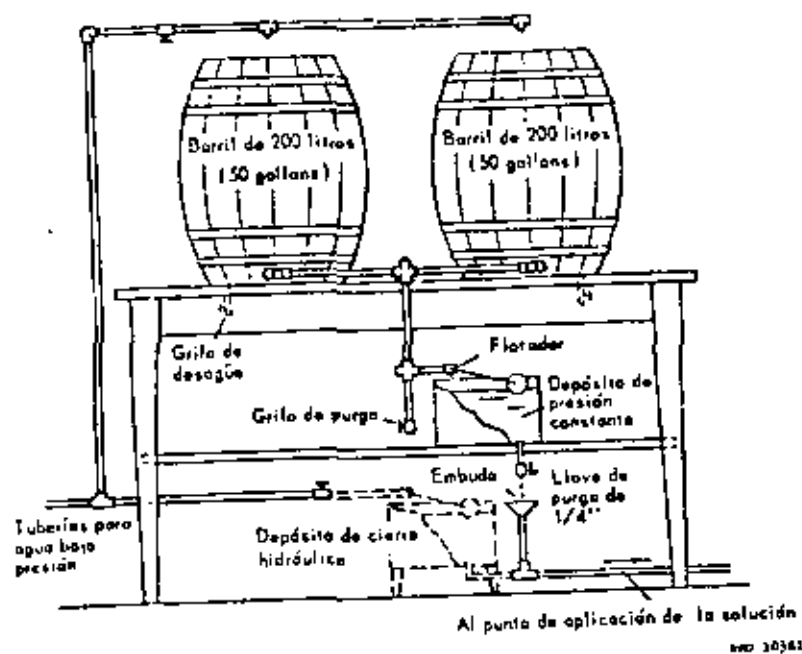 Barril de 200 litros
(50 gallons)
Barril de 200 litros
(50 gallons)
Grifo de
desagüe
Flotador
Depósito de
presión
constante
Grifo de purga
Embudo
Llave de
purga de
1/4"
Tuberías para
agua bajo
presión
Depósito de cierre
hidráulico
Al punto de aplicación de la solución